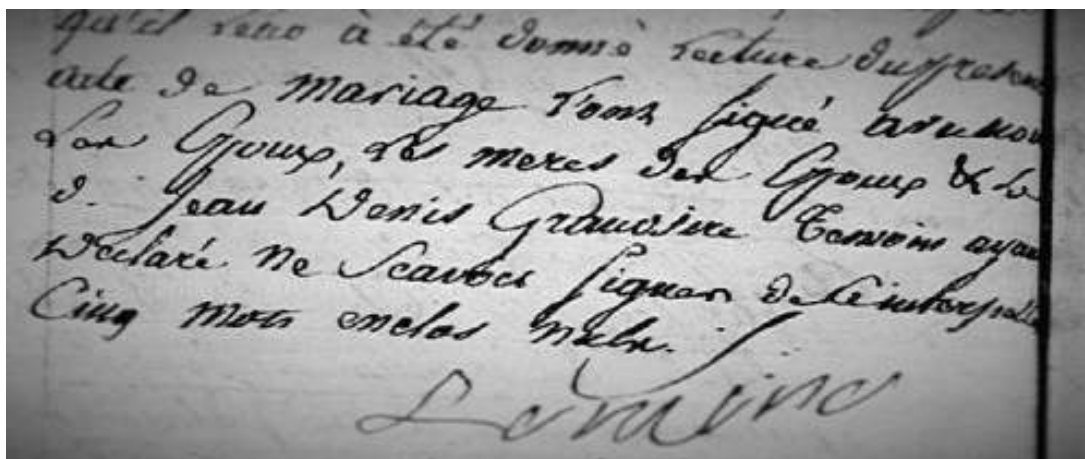 qu'il leur à été donné Lecture du present
acte de mariage l'ont signé avec nous
Les Epoux, Les meres des Epoux & Le
d. Jean Denis Grandsire Temoins ayan
Declaré ne Scavoir signer de ce interpellé
Cinq mots enclos nuls.
Lemoine